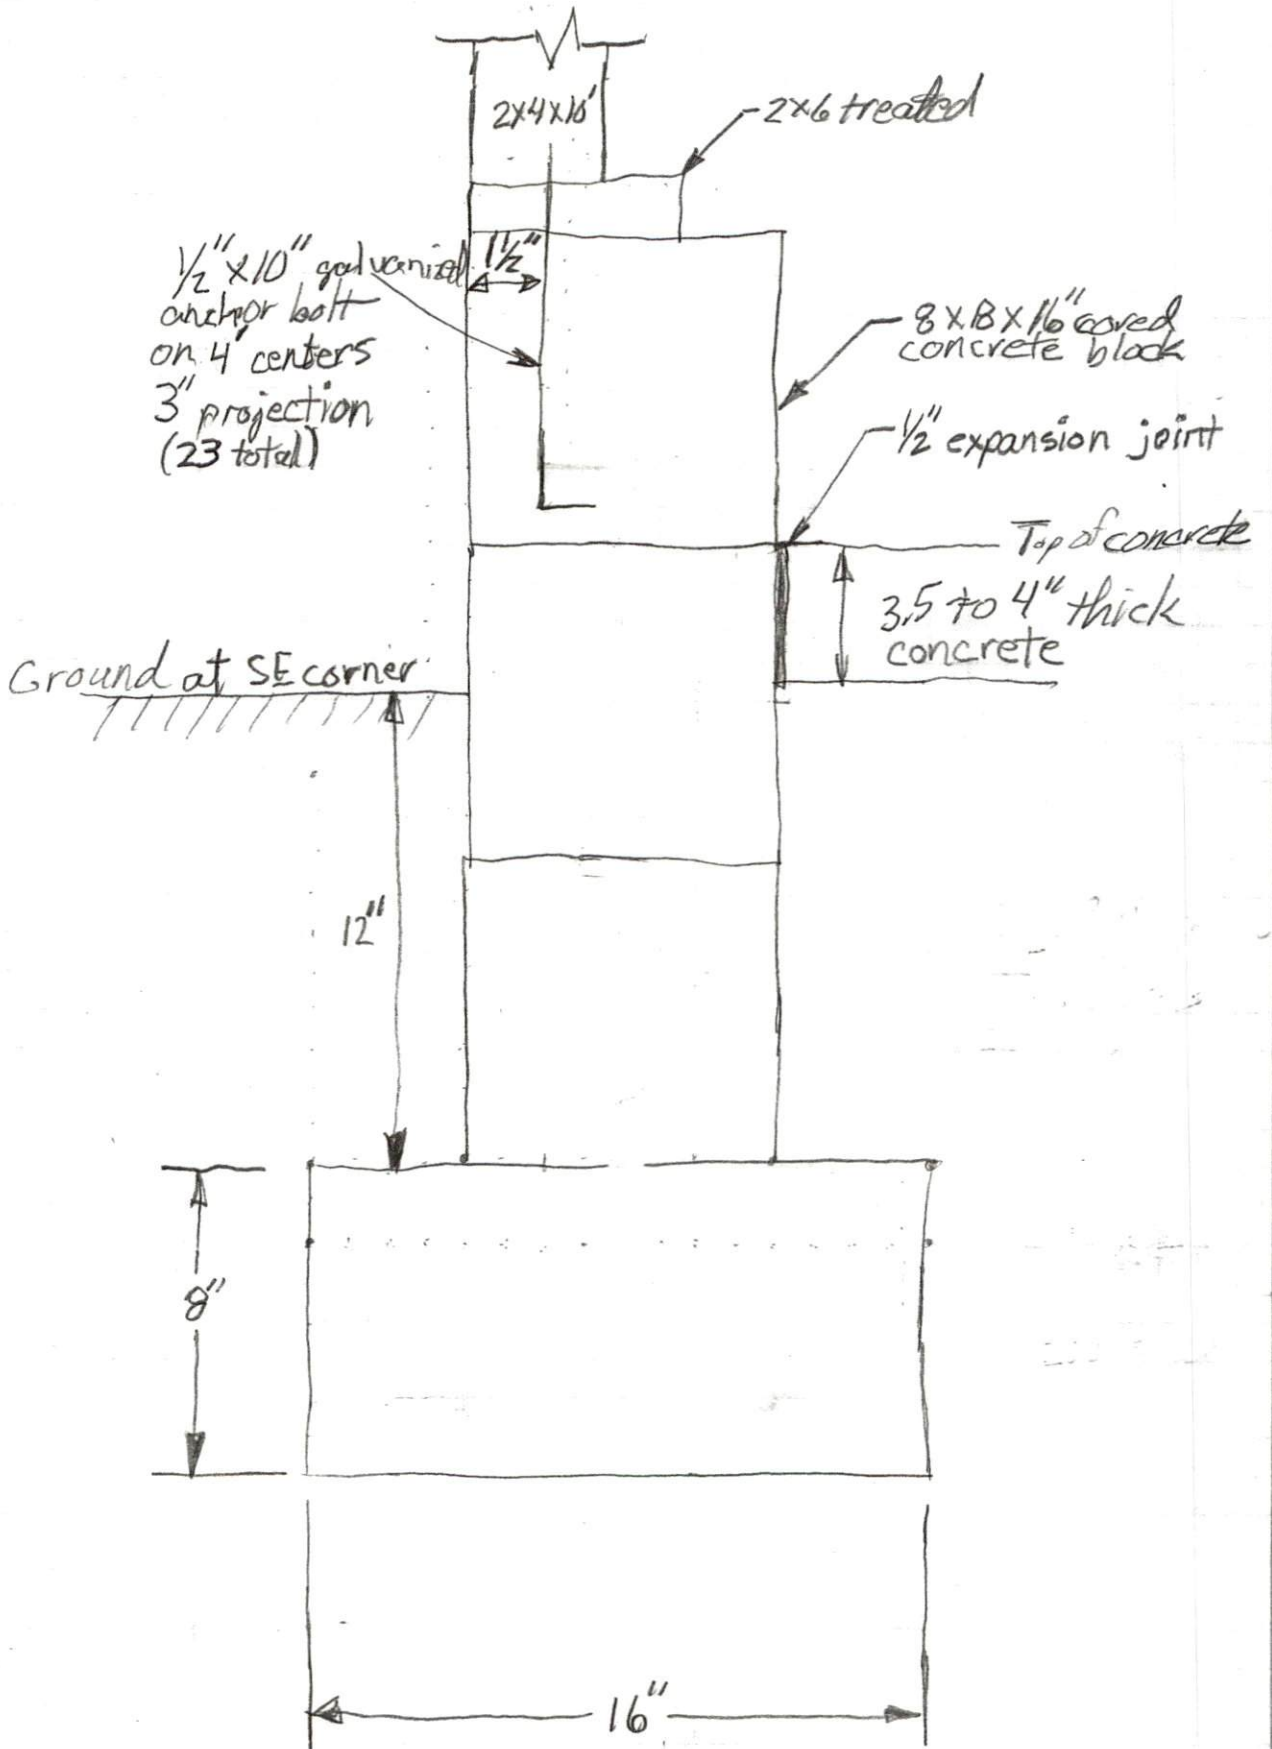 2x4x10'
2x6 treated
1/2" x10" galvanized
anchor bolt
on 4' centers
3" projection
(23 total)
1 1/2"
8x8x16" cored
concrete block
1/2" expansion joint
Top of concrete
3.5 to 4" thick
concrete
Ground at SE corner
12"
8"
16"